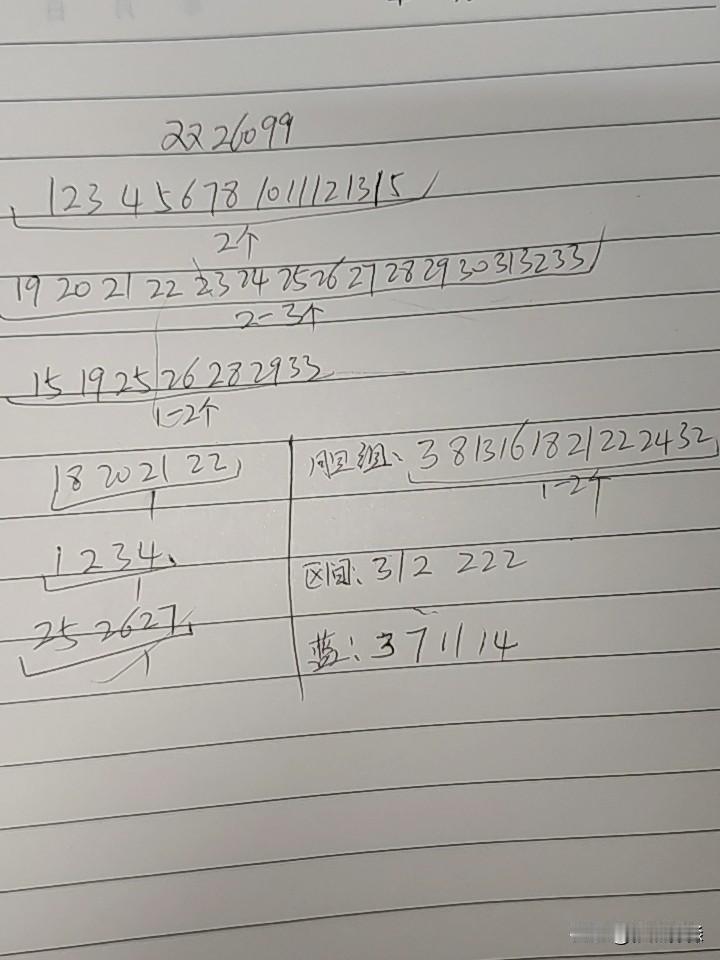 2226099
1 2 3 4 5 6 7 8 10 11 12 13 15
2个
19 20 21 22 23 24 25 26 27 28 29 30 31 32 33
2-3个
15 19 25 26 28 29 33
1-2个
18 20 21 22
1
1 2 3 4
1
25 26 27
1
胆组: 3 8 13 16 18 21 22 24 32
1-2个
区间: 312 222
蓝: 3 7 11 14